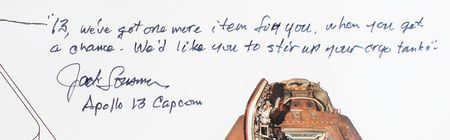 "13, we've got one more item for you, when you get
a chance. We'd like you to stir up your cryo tanks."
Jack Lousma
Apollo 13 Capcom